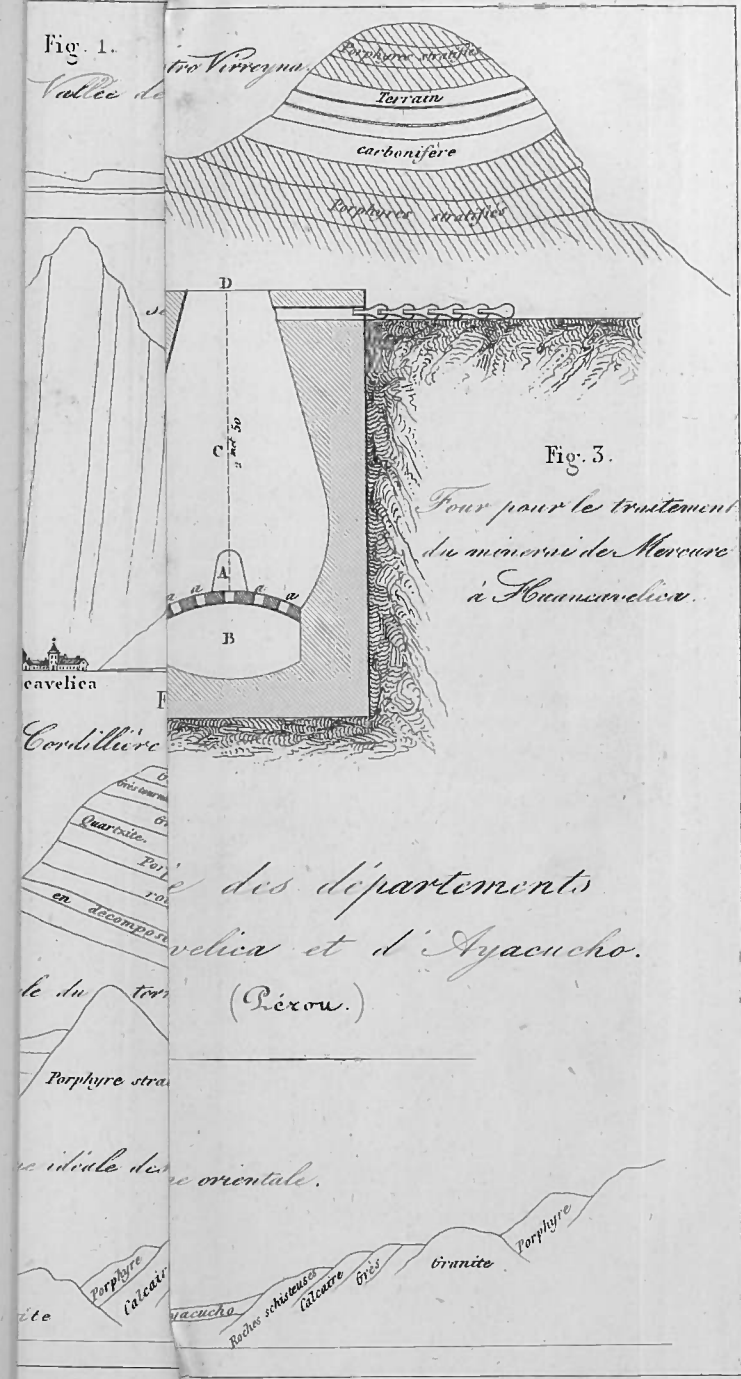 Fig. 1.
Vallée de
tro Virreyna.
Porphyres stratifiés
Terrain
carbonifère
Porphyres stratifiés
D
C
2 met 50
A
a a a a
B
Fig. 3.
Four pour le traitement
du minerai de Mercure
à Huancavelica.
cavelica
F
Cordillière
Quartzite.
Por
en decompos
e des départements
velica et d'Ayacucho.
(Pérou.)
le du terr
Porphyre stra
e idéale de
e orientale.
ite
Porphyre
Calcair
yacucho
Roches schisteuses
Calcaire
Grès
Granite
Porphyre